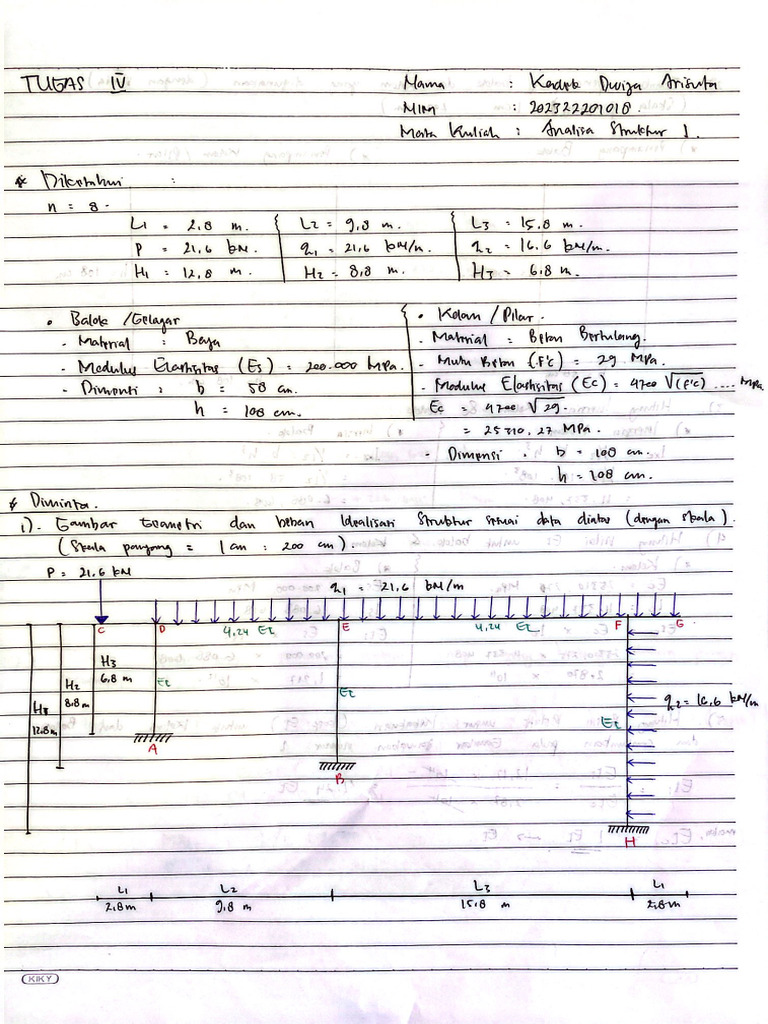 TUGAS IV
Nama : Kadek Dwija Arisuta
NIM : 202322201018.
Mata Kuliah : Analisa Struktur 1.
* Diketahui :
n = 8.
L1 = 2.8 m. L2 = 9.8 m. L3 = 15.8 m.
P = 21.6 kN. q1 = 21.6 kN/m. q2 = 16.6 kN/m.
H1 = 12.8 m. H2 = 8.8 m. H3 = 6.8 m.
• Balok / Gelagar
- Material : Baja
- Modulus Elastisitas (Es) = 200.000 MPa.
- Dimensi : b = 58 cm.
h = 108 cm.
• Kolom / Pilar.
- Material : Beton Bertulang.
- Mutu Beton (F'c) = 29 MPa.
- Modulus Elastisitas (Ec) = 4700 √(f'c) .... MPa
Ec = 4700 √29.
= 25310,27 MPa.
- Dimensi : b = 108 cm.
h = 108 cm.
* Diminta.
1). Gambar Geometri dan beban Idealisasi Struktur sesuai data diatas (dengan skala).
(Skala panjang = 1 cm : 200 cm).
P = 21.6 kN
q1 = 21.6 kN/m
C D E F G
4.24 EI 4.24 EI
H3
6.8 m
EI
H2
8.8 m
EI
H1
12.8 m
EI
q2 = 16.6 kN/m
A
B
H
L1 L2 L3 L1
2.8 m 9.8 m 15.8 m 2.8 m
KIKY